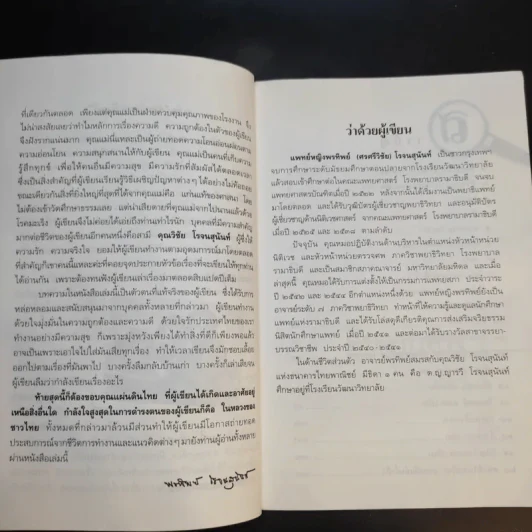 ที่เดียวกันตลอด เพียงแต่คุณแม่เป็นฝ่ายควบคุมคุณภาพของโรงงาน จึง
ไม่น่าสงสัยเลยว่าทำไมหลักการเรื่องความดี ความถูกต้องในตัวของผู้เขียน
จึงฝังรากแน่นมาก คุณแม่นี่แหละเป็นผู้ถ่ายทอดความโอนอ่อนผ่อนตาม
ความอ่อนโยน ความสนุกสนานให้กับผู้เขียน คุณแม่เป็นคนที่เก็บความ
รู้สึกทุกข์ เพื่อให้คนอื่นมีความสุข มีความรักที่สัมผัสได้ตลอดเวลา
ซึ่งเป็นสิ่งสำคัญที่ผู้เขียนเรียนรู้วิธีเผชิญปัญหาต่างๆ ได้อย่างไม่ท้อถอย
ขณะเดียวกันสิ่งที่ยิ่งใหญ่ที่สุดที่ได้จากคุณแม่คือ แก่นแท้ของศาสนา โดย
ไม่ต้องเข้าวัดศึกษาธรรมเลย แต่น่าเสียดายที่คุณแม่จากไปนานแล้วด้วย
โรคมะเร็ง ผู้เขียนจึงไม่ค่อยได้เอ่ยถึงท่านเท่าไรนัก บุคคลที่มีความสำคัญ
มากต่อชีวิตของผู้เขียนอีกคนหนึ่งคือสามี คุณวิชัย โรจนสุนันท์ ผู้ซึ่งให้
ความรัก ความจริงใจ ยอมให้ผู้เขียนทำงานตามอุดมการณ์มาโดยตลอด
ที่สำคัญก็เขาคนนี้แหละค่ะที่คอยจุดประกายหัวข้อเรื่องที่จะเขียนให้ทุกท่าน
ได้อ่านกัน เพราะต้องทนฟังผู้เขียนเล่าเรื่องมาตลอดสิบแปดปีเต็ม
บทความในหนังสือเล่มนี้เป็นตัวตนที่แท้จริงของผู้เขียน ซึ่งได้รับการ
หล่อหลอมและสนับสนุนมาจากบุคคลทั้งหลายที่กล่าวมา ผู้เขียนทำงาน
ด้วยใจมุ่งมั่นในความถูกต้องและความดี ด้วยใจรักประเทศไทยของเรา
ทำงานอย่างมีความสุข ก็เพราะมุ่งหวังเพียงได้ทำสิ่งที่ดีก็เพียงพอแล้ว
อาจเป็นเพราะเอาใจไปใส่มันเสียทุกเรื่อง ทำให้เวลาเขียนจึงมักชอบเลื้อย
ออกไปตามเรื่องที่มันพาไป บางครั้งลืมกลับบ้านเก่า บางครั้งก็เล่าเสียจน
ผู้เขียนลืมว่ากำลังเขียนเรื่องอะไร
ท้ายสุดนี้ก็ต้องขอบคุณแผ่นดินไทย ที่ผู้เขียนได้เกิดและอาศัยอยู่
เหนือสิ่งอื่นใด กำลังใจสูงสุดในการดำรงตนของผู้เขียนก็คือ ในหลวงของ
ชาวไทย ทั้งหมดที่กล่าวมาล้วนมีส่วนทำให้ผู้เขียนมีโอกาสถ่ายทอด
ประสบการณ์จากชีวิตการทำงานและแนวคิดต่างๆ มายังท่านผู้อ่านทั้งหลาย
ผ่านหนังสือเล่มนี้
พรทิพย์ โรจนสุนันท์
ว่าด้วยผู้เขียน
แพทย์หญิงพรทิพย์ (ศรศรีวิชัย) โรจนสุนันท์ เป็นชาวกรุงเทพฯ
จบการศึกษาระดับมัธยมศึกษาตอนปลายจากโรงเรียนวัฒนาวิทยาลัย
แล้วสอบเข้าศึกษาต่อในคณะแพทยศาสตร์ โรงพยาบาลรามาธิบดี จนจบ
แพทยศาสตรบัณฑิตเมื่อปี ๒๕๒๒ หลังจากนั้นได้เริ่มงานเป็นพยาธิแพทย์
มาโดยตลอด และได้รับวุฒิบัตรผู้เชี่ยวชาญพยาธิวิทยา และอนุมัติบัตร
ผู้เชี่ยวชาญด้านนิติเวชศาสตร์ จากคณะแพทยศาสตร์ โรงพยาบาลรามาธิบดี
ตามลำดับ
ปัจจุบัน คุณหมอปฏิบัติงานด้านบริหารในตำแหน่งหัวหน้าหน่วย
นิติเวช และหัวหน้าหน่วยตรวจศพ ภาควิชาพยาธิวิทยา โรงพยาบาล
รามาธิบดี และเป็นสมาชิกสภาคณาจารย์ มหาวิทยาลัยมหิดล และเมื่อ
ล่าสุดนี้ คุณหมอได้รับการแต่งตั้งให้เป็นกรรมการแพทยสภา ประจำวาระ
ปี ๒๕๔๒ และ ๒๕๔๔ อีกตำแหน่งหนึ่งด้วย แพทย์หญิงพรทิพย์ยังเป็น
อาจารย์ระดับ ๗ ภาควิชาพยาธิวิทยา ทำหน้าที่ให้ความรู้และดูแลนักศึกษา
แพทย์แห่งรามาธิบดี และได้รับโล่สดุดีเกียรติคุณการส่งเสริมจริยธรรม
นิสิตนักศึกษาแพทย์ เมื่อปี ๒๕๔๔ และต่อมาได้รับรางวัลสาขาจรรยา-
บรรณวิชาชีพ ประจำปี ๒๕๔๐-๒๕๔๑
ในด้านชีวิตส่วนตัว อาจารย์พรทิพย์สมรสกับคุณวิชัย โรจนสุนันท์
แห่งธนาคารไทยพาณิชย์ มีธิดา ๑ คน คือ ด.ญ.ญารวี โรจนสุนันท์
ศึกษาอยู่ที่โรงเรียนวัฒนาวิทยาลัย